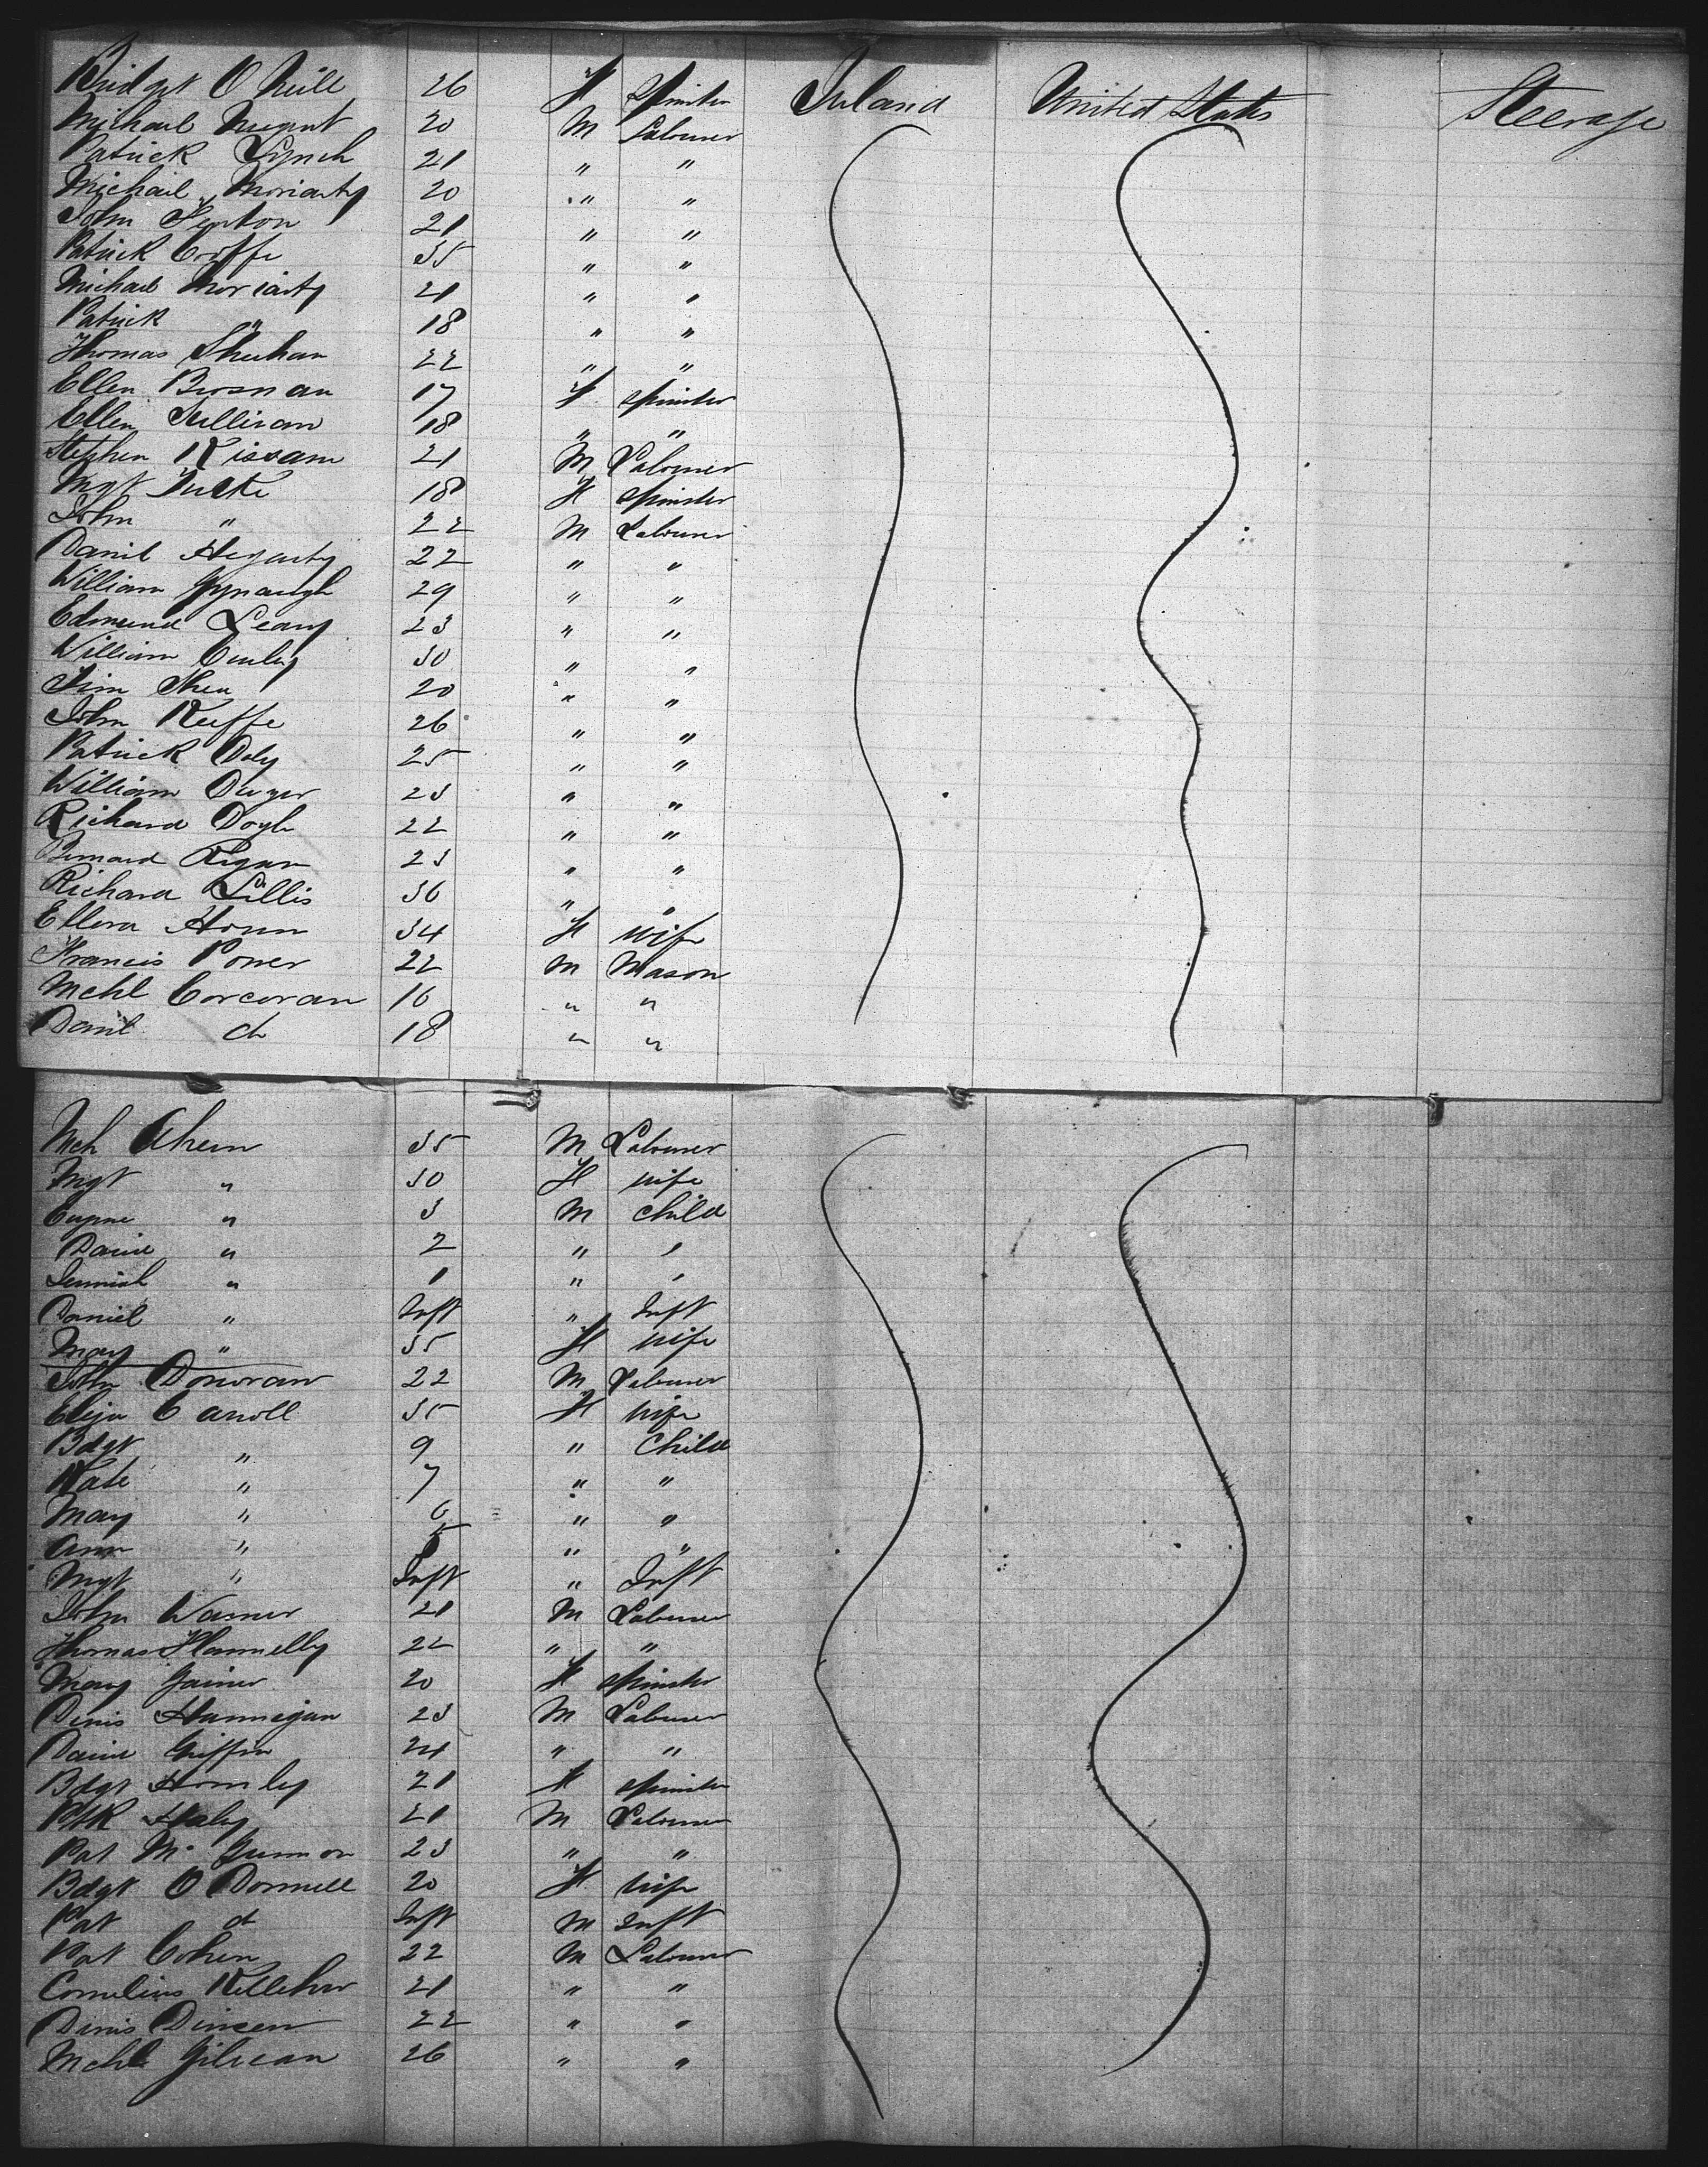 Bridget O Neill 26 F Spinster Ireland United States Steerage
Michael Nugent 20 M Labourer
Patrick Lynch 21 " "
Michael Moriarty 20 " "
John Fenton 21 " "
Patrick 35 " "
Michael Moriarty 21 " "
Patrick " 18 " "
Thomas Sheehan 22 " "
Ellen Brosnan 17 F Spinster
Ellen Sullivan 18 " "
Stephen Kissane 21 M Labourer
Mgt 18 F Spinster
John " 22 M Labourer
Danil Hegarty 22 " "
William 29 " "
Edmund Leary 23 " "
William 30 " "
Tim Shea 20 " "
John Keeffe 26 " "
Patrick Daly 25 " "
William Dwyer 23 " "
Richard Doyle 22 " "
Bernard Regan 23 " "
Richard Lillis 36 " "
Ellen 34 F wife
Francis Power 22 M Mason
Mchl Corcoran 16 " "
Danil do 18 " "
Mch Ahern 35 M Labourer
Mgt " 30 F wife
Eugene " 3 M Child
David " 2 " "
Jermiah " 1 " "
Daniel " Inft " Inft
Mary " 35 F wife
John Donovan 22 M Labourer
Eliza Carroll 35 F wife
Bdgt " 9 " Child
Kate " 7 " "
Mary " 6 " "
Ann " " "
Mgt " Inft " Inft
John 21 M Labourer
Thomas Hannelly 22 " "
Mary Gainer 20 F Spinster
Denis Hannegan 23 M Labourer
David Griffin 24 " "
Bdgt 21 F Spinster
Ptk Healy 21 M Labourer
Pat Mc 23 " "
Bdgt O Donnell 20 F wife
Pat do Inft M Inft
Pat Cohen 22 M Labourer
Cornelius Kelleher 21 " "
Denis Dineen 22 " "
Mchl 26 " "